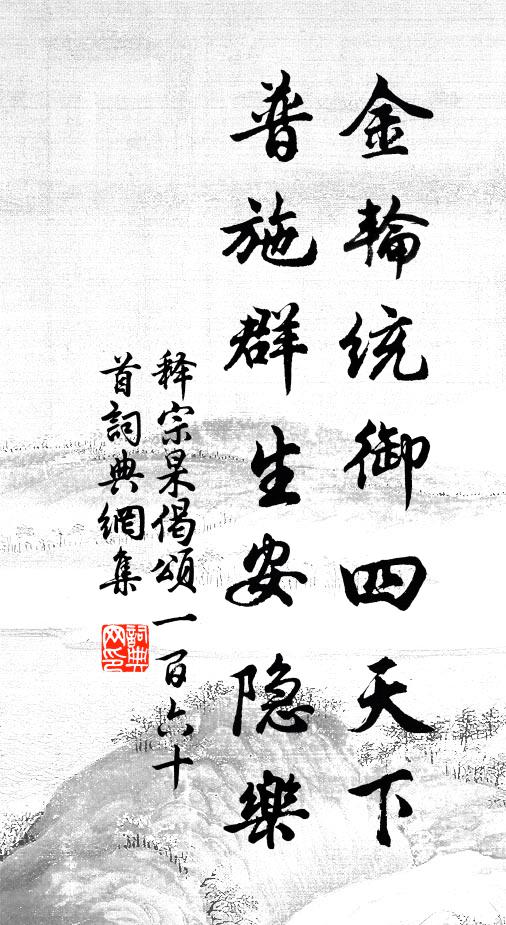 金輪統御四天下
普施群生安隐樂
释宗杲偈頌一百六十
首詞典網集